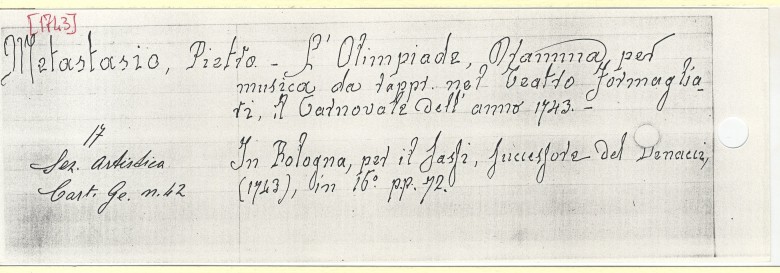 [1743]
Metastasio, Pietro - L' Olimpiade, Dramma per
musica da rappr. nel Teatro Formaglia-
ri, il Carnovale dell' anno 1743. -
17
Sez. Artistica
Cart. Ge. n. 42
In Bologna, per il Sassi, Successore del Benacci,
(1743), in 16° pp. 72.